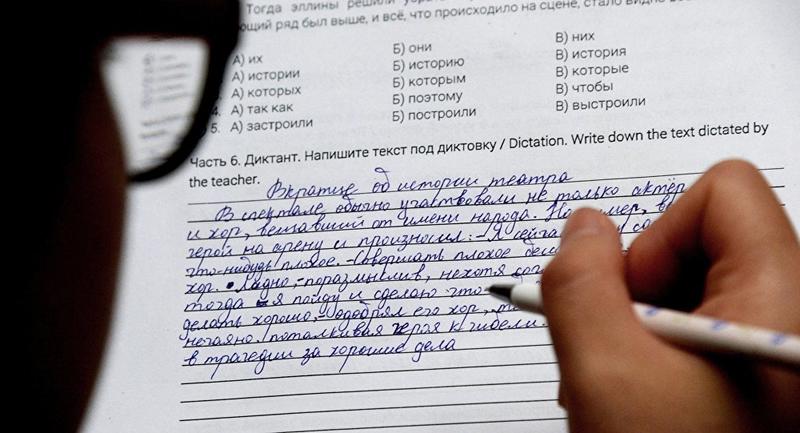 Тогда эллины решили
ряд был выше, и всё, что происходило на сцене, стало видно
А) их Б) они В) них
А) истории Б) историю В) история
А) которых Б) которым В) которые
4. А) так как Б) поэтому В) чтобы
5. А) застроили Б) построили В) выстроили
Часть 6. Диктант. Напишите текст под диктовку / Dictation. Write down the text dictated by
the teacher.
Вкратце об истории театра
В спектакле обычно участвовали не только актёр
и хор, вещавший от имени народа. в
герой на арену и произносил: - Я
что-нибудь плохое. - Совершать плохое
хор. Ладно, - поразмыслив, нехотя
тогда я пойду и сделаю что
делать хорошо, - одобрял его хор,
нечаяно поталкивая героя к гибели.
в трагедии за хорошие дела